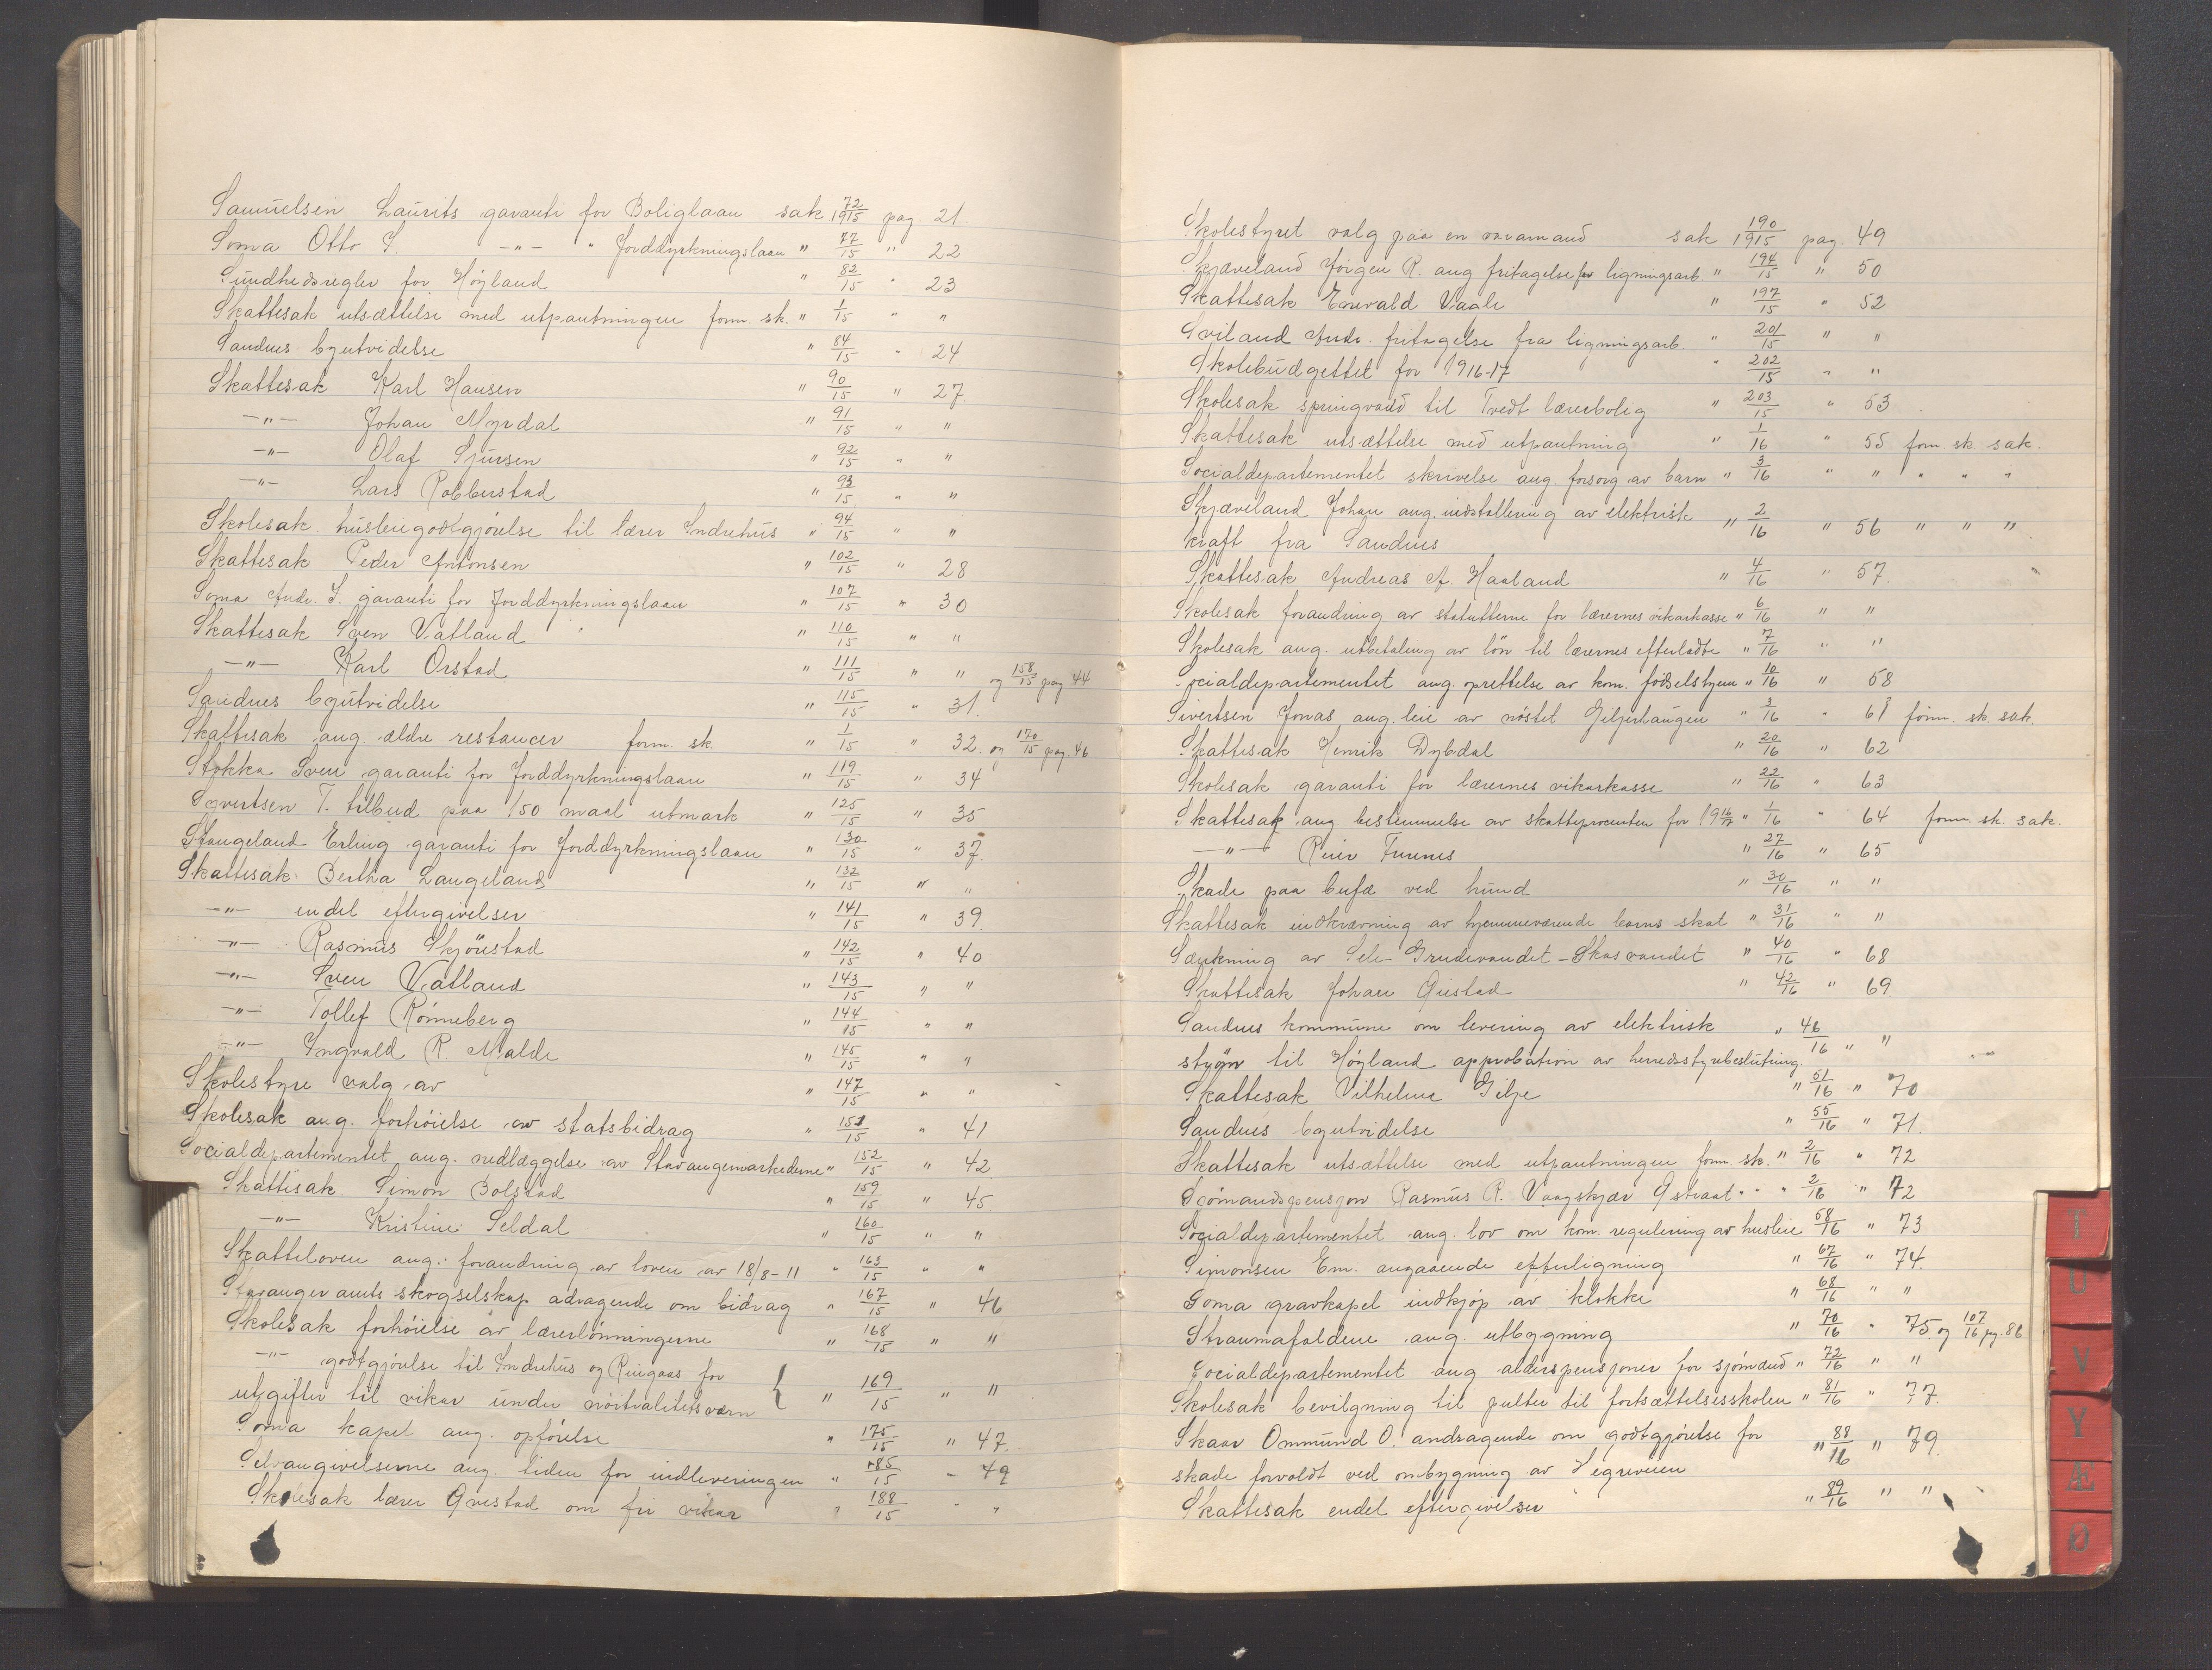 Samuelsen Laurits garanti for Boliglaan sak 72/1915 pag. 21.
Soma Otto I. -"- " Jorddyrkningslaan " 77/15 " 22
Sundhedsregler for Høyland " 82/15 " 23
Skattesak utsættelse med utpantningen form. sk. " 1/15 " "
Sandnes byutvidelse " 84/15 " 24
Skattesak Karl Hansen " 90/15 " 27.
-"- Johan Myrdal " 91/15 " "
-"- Olaf Sjursen " 92/15 " "
-"- Lars Robberstad " 93/15 " "
Skolesak husleiegodtgjørelse til lærer Indrehus " 94/15 " "
Skattesak Peder Antonsen " 102/15 " 28
Soma Andr. I. garanti for Jorddyrkningslaan " 107/15 " 30
Skattesak Sven Vatland " 110/15 " "
-"- Karl Orstad " 111/15 " " og 158/15 pag 44
Sandnes byutvidelse " 115/15 " 31.
Skattesak ang. ældre restancer form. sk. " 1/15 " 32. og 170/15 pag. 46
Stokka Sven garanti for Jorddyrkningslaan " 119/15 " 34
Syvertsen T. tilbud paa 150 maal utmark " 125/15 " 35
Stangeland Erling garanti for Jorddyrkningslaan " 130/15 " 37.
Skattesak Bertha Langeland " 132/15 " "
-"- endel eftergivelser " 141/15 " 39.
-"- Rasmus Skjørestad " 142/15 " 40
-"- Sven Vatland " 143/15 " "
-"- Tollef Rønneberg " 144/15 " "
-"- Ingvald R. Malde " 145/15 " "
Skolestyre valg av " 147/15 " "
Skolesak ang. forhøielse av statsbidrag " 151/15 " 41
Socialdepartementet ang. nedlæggelse av Stavangermarkederne " 152/15 " 42
Skattesak Simon Bolstad " 159/15 " 45
-"- Kristine Seldal " 160/15 " "
Skatteloven ang. forandring av loven av 18/8-11 " 163/15 " "
Stavanger amts skogselskap adragende om bidrag " 167/15 " 46
Skolesak forhøielse av lærerlønningerne " 168/15 " "
-"- godtgjørelse til Indrehus og Ringaas for
utgifter til vikar under nøitralitetsværn { " 169/15 " "
Soma kapel ang. opførelse " 175/15 " 47.
Selvangivelserne ang. tiden for indleveringen " 185/15 - 49
Skolesak lærer Qvestad om fri vikar " 188/15 - "
Skolestyret valg paa en varamand sak 190/1915 pag. 49
Skjæveland Jørgen R. ang fritagelse for ligningsarb " 194/15 " 50
Skattesak Enevald Vagle " 197/15 " 52
Sviland Andr. fritagelse fra ligningsarb. " 201/15 " "
Skolebudgettet for 1916-17 " 202/15 " "
Skolesak springvand til Tvedt lærerbolig " 203/15 " 53
Skattesak utsættelse med utpantning " 1/16 " 55 form. sk. sak.
Socialdepartementet skrivelse ang. forsorg av barn " 3/16 " " " " "
Skjæveland Johan ang. indstallering av elektrisk
kraft fra Sandnes " 2/16 " 56 " " "
Skattesak Andreas A. Haaland " 4/16 " 57.
Skolesak forandring av statutterne for lærernes vikarkasse " 6/16 " "
Skolesak ang. utbetaling av løn til lærernes efterladte " 7/16 " "
Socialdepartementet ang. oprettelse av kom. fødselshjem " 10/16 " 58
Sivertsen Jonas ang. leie av nøstet Giljerhaugen " 3/16 " 61 form. sk. sak.
Skattesak Henrik Dybdal " 20/16 " 62
Skolesak garanti for lærernes vikarkasse " 22/16 " 63
Skattesak ang bestemmelse av skatteprocenten for 1916/17 " 1/16 " 64 form. sk. sak.
-"- Reier Furenes " 27/16 " 65
Skade paa bufæ ved hund " 30/16 " "
Skattesak indkrævning av hjemmeværende barns skat " 31/16 " "
Sænkning av Sele-Grudevandet-Skasvandet " 40/16 " 68
Skattesak Johan Qvistad " 42/16 " 69.
Sandnes kommune om levering av elektrisk " 46/16 " "
strøm til Høyland approbation av herredsstyrebeslutning.
Skattesak Vilhelm Gilje " 51/16 " 70
Sandnes byutvidelse " 55/16 " 71.
Skattesak utsættelse med utpantningen form. sk. " 2/16 " 72
Sømandspensjon Rasmus R. Vaagskjær Gstraat " " 2/16 " 72
Socialdepartementet ang. lov om kom. regulering av husleie 58/16 " 73
Simonsen Em. angaaende efterligning " 67/16 " 74.
Soma gravkapel indkjøp av klokke " 68/16 " "
Straumafaldene ang. utbygning " 70/16 " 75 og 107/16 pg. 86
Socialdepartementet ang alderspensjoner for sjømænd " 72/16 " "
Skolesak bevilgning til pulter til fortsættelsesskolen " 81/16 " 77.
Skaar Ommund O. andragende om godtgjørelse for
skade forvoldt ved ombygning av Hegreveien " 88/16 " 79.
Skattesak endel eftergivelser " 89/16 " "
T
U
V
Y
Æ
Ø